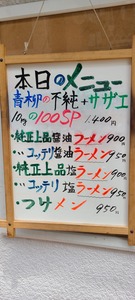 本日のメニュー
青柳の不純+サザエ
10食の100SP 1.400円
・純正上品醤油ラーメン900円
・〃コッテリ醤油ラーメン950
・純正上品塩ラーメン900
・〃コッテリ塩ラーメン950
・つけメン 950